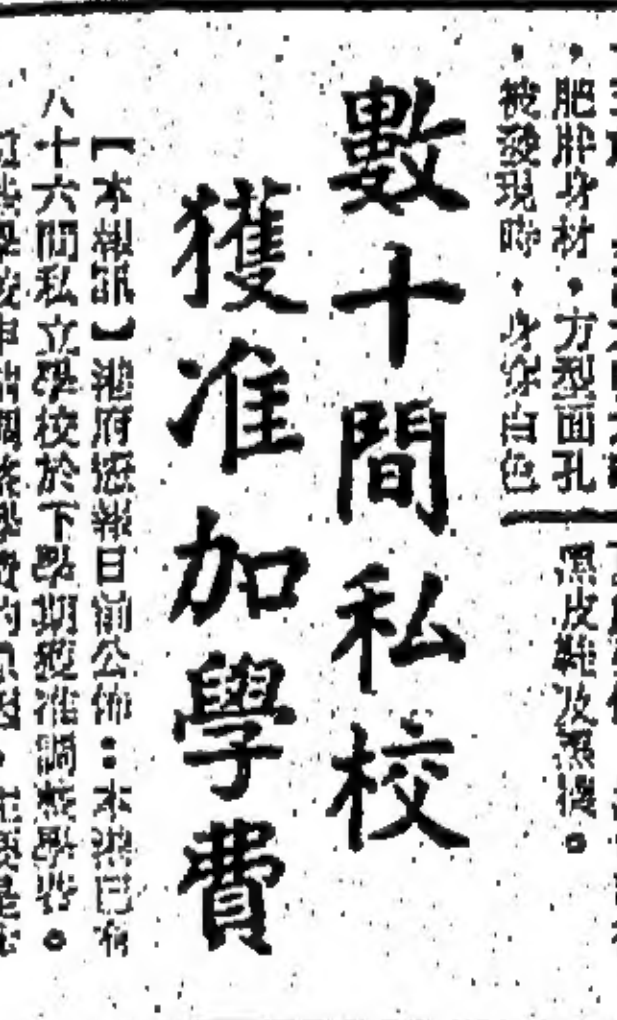 ，肥胖身材，方型面孔
，被發現時，身穿白色
黑皮鞋及黑襪。
數十間私校
獲准加學費
【本報訊】港府憲報日前公佈：本港已有
八十六間私立學校於下學期獲准調整學費。